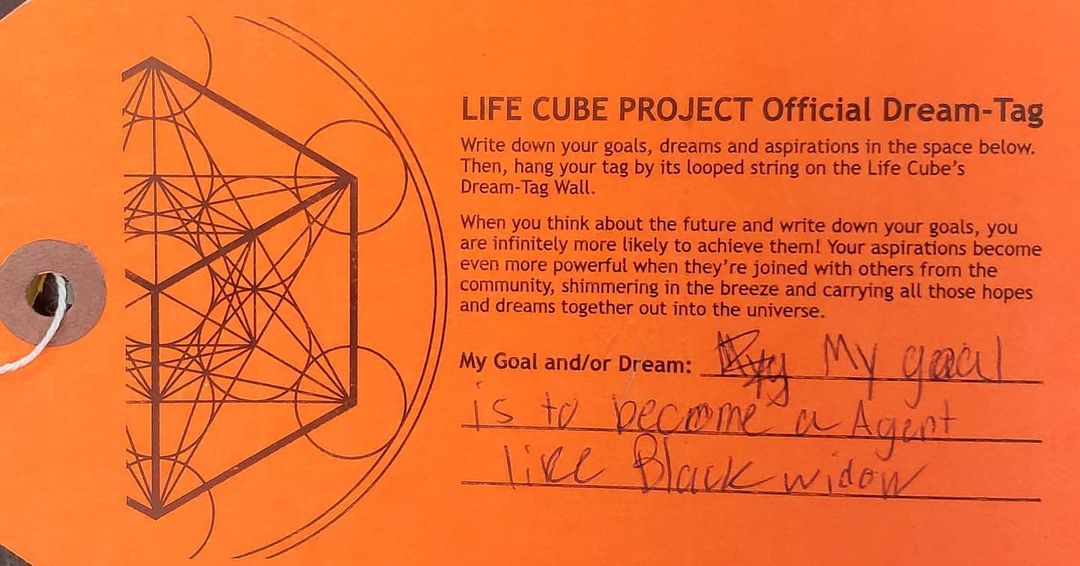 LIFE CUBE PROJECT Official Dream-Tag
Write down your goals, dreams and aspirations in the space below.
Then, hang your tag by its looped string on the Life Cube's
Dream-Tag Wall.
When you think about the future and write down your goals, you
are infinitely more likely to achieve them! Your aspirations become
even more powerful when they're joined with others from the
community, shimmering in the breeze and carrying all those hopes
and dreams together out into the universe.
My Goal and/or Dream: My goal
is to become a Agent
like Black widow